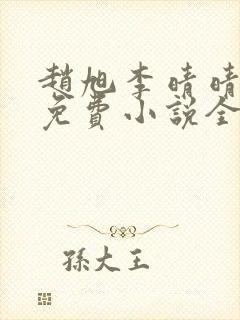 趙旭李晴晴
免費小說全
孫大王